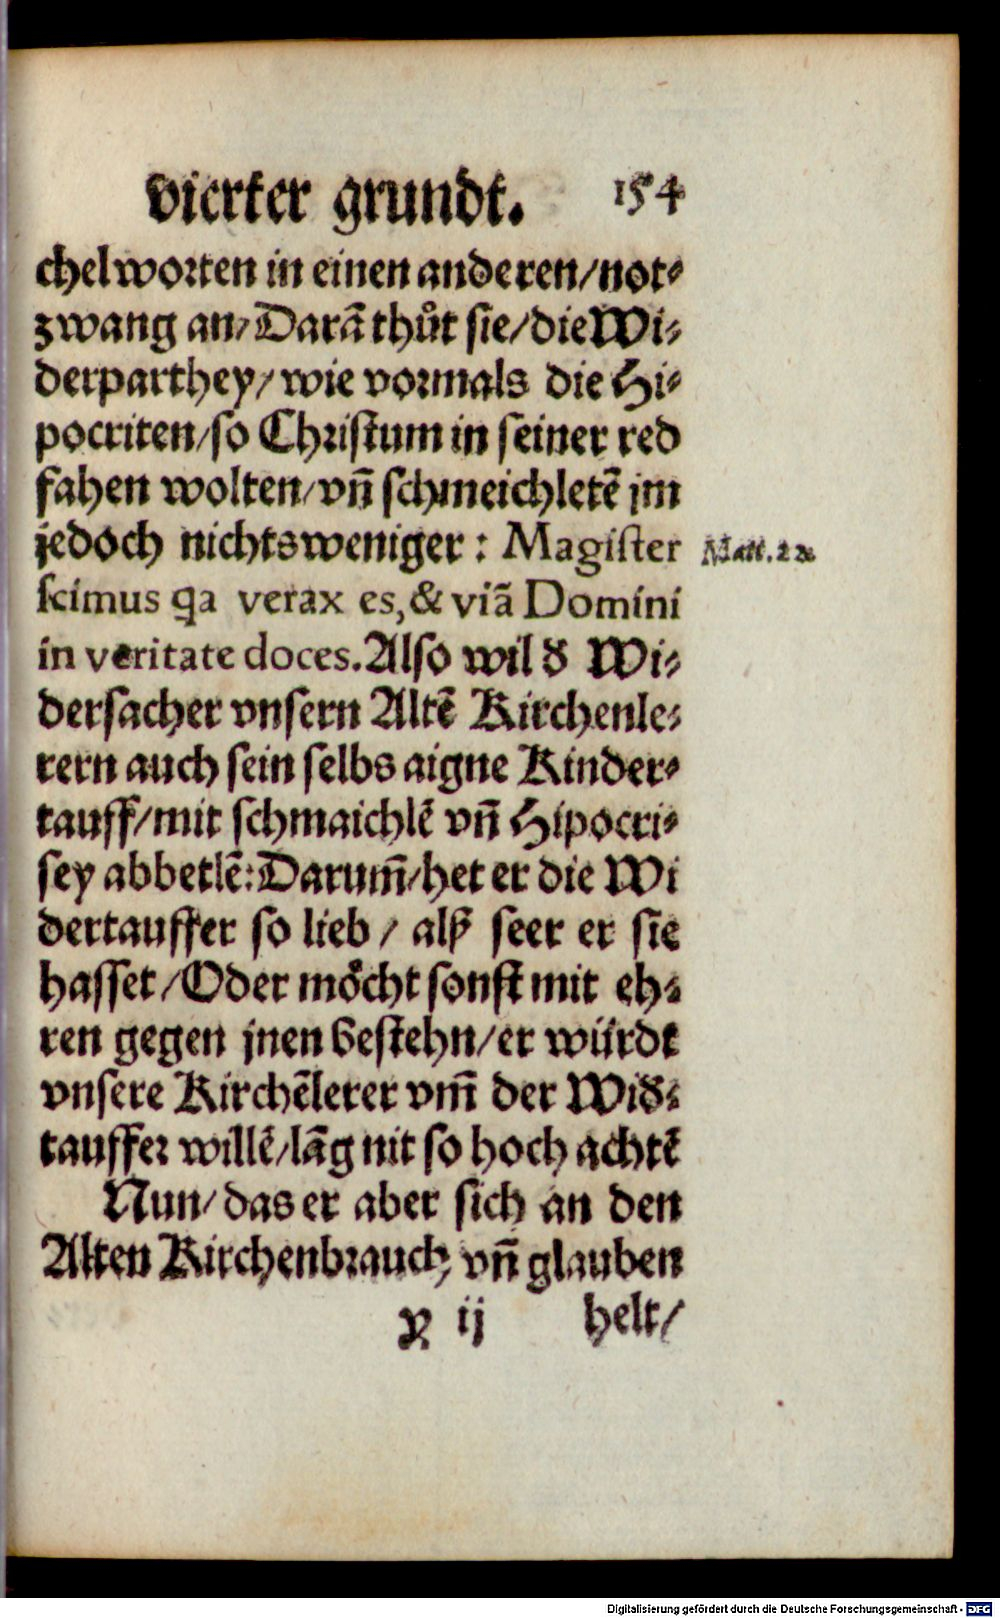 vierter grundt. 154
chelworten in einen anderen/not⸗
zwang an/Darã thůt sie/die Wi⸗
derparthey/wie vormals die Hi⸗
pocriten/so Christum in seiner red
fahen wolten/vñ schmeichletẽ jm
jedoch nichtsweniger: Magister Matt. 22
scimus qa verax es, & viã Domini
in veritate doces. Also wil d Wi⸗
dersacher vnsern Altẽ Kirchenle⸗
rern auch sein selbs aigne Kinder⸗
tauff/mit schmaichlẽ vñ Hipocri⸗
sey abbetlẽ: Darum̃/het er die Wi
dertauffer so lieb/ alß seer er sie
hasset/Oder möcht sonst mit eh⸗
ren gegen jnen bestehn/er würdt
vnsere Kirchẽlerer vm̃ der Wid⸗
tauffer willẽ/lãg nit so hoch achtẽ
Nun/das er aber sich an den
Alten Kirchenbrauch, vñ glauben
X ij helt/
Digitalisierung gefördert durch die Deutsche Forschungsgemeinschaft - DFG